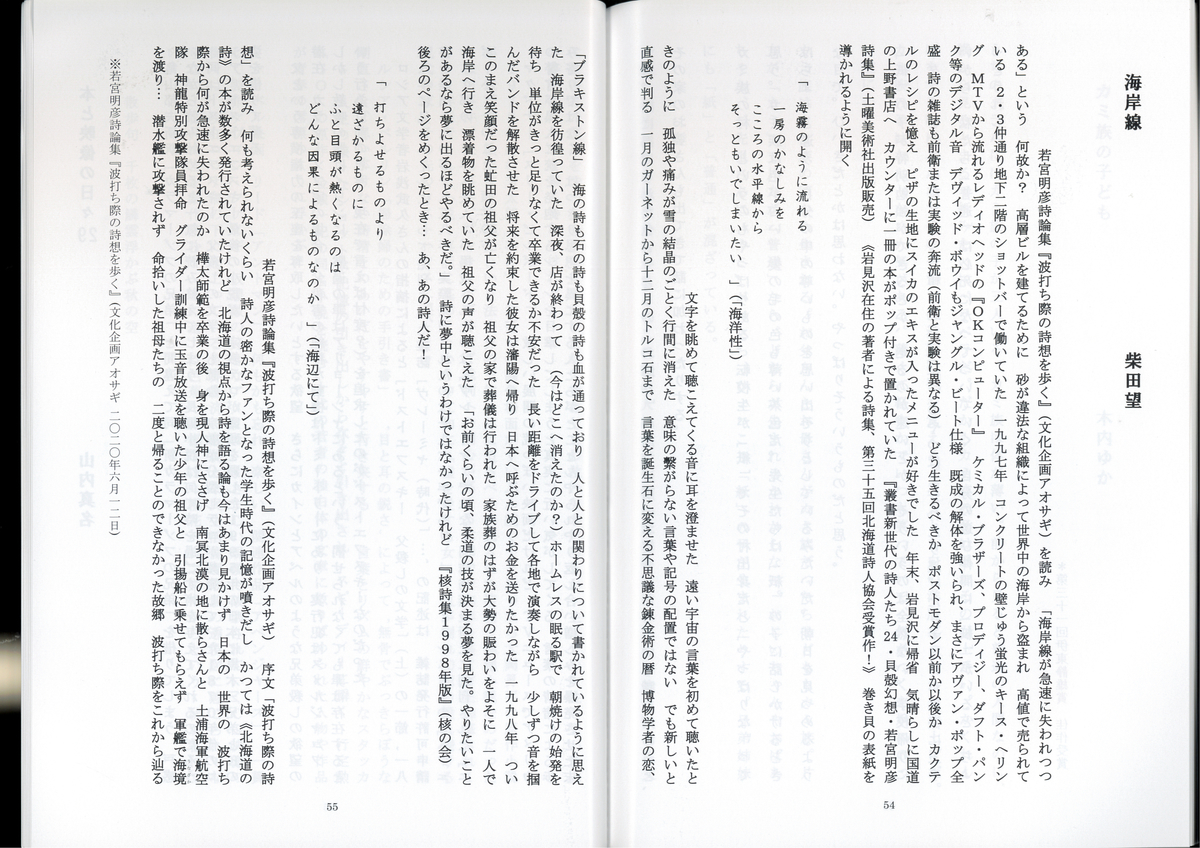 海岸線
柴田望
若宮明彦詩論集『波打ち際の詩想を歩く』(文化企画アオサギ)を読み 「海岸線が急速に失われつつ
ある」という 何故か? 高層ビルを建てるために 砂が違法な組織によって世界中の海岸から盗まれ 高値で売られて
いる 2・3仲通り地下二階のショットバーで働いていた 一九九七年 コンクリートの壁じゅう蛍光のキース・ヘリン
グ MTVから流れるレディオヘッドの『OKコンピューター』 ケミカル・ブラザーズ、プロディジー、ダフト・パン
ク等のデジタル音 デヴィッド・ボウイもジャングル・ビート仕様 既成の解体を強いられ、まさにアヴァン・ポップ全
盛 詩の雑誌も前衛または実験の奔流(前衛と実験は異なる) どう生きるべきか ポストモダン以前か以後か カクテ
ルのレシピを憶え ピザの生地にスイカのエキスが入ったメニューが好きでした 年末、岩見沢に帰省 気晴らしに国道
の上野書店へ カウンターに一冊の本がポップ付きで置かれていた 『叢書新世代の詩人たち24・貝殻幻想・若宮明彦
詩集』(土曜美術社出版販売) 《岩見沢在住の著者による詩集、第三十五回北海道詩人協会受賞作!》 巻き貝の表紙を
導かれるように開く
「 海霧のように流れる
一房のかなしみを
こころの水平線から
そっともいでしまいたい 」(「海洋性」)
文字を眺めて聴こえてくる音に耳を澄ませた 遠い宇宙の言葉を初めて聴いたと
きのように 孤独や痛みが雪の結晶のごとく行間に消えた 意味の繋がらない言葉や記号の配置ではない でも新しいと
直感で判る 一月のガーネットから十二月のトルコ石まで 言葉を誕生石に変える不思議な錬金術の暦 博物学者の恋、
54
「ブラキストン線」 海の詩も石の詩も貝殻の詩も血が通っており 人と人との関わりについて書かれているように思え
た 海岸線を彷徨っていた 深夜、店が終わって (今はどこへ消えたのか?)ホームレスの眠る駅で 朝焼けの始発を
待ち 単位がきっと足りなくて卒業できるか不安だった 長い距離をドライブして各地で演奏しながら 少しずつ音を掴
んだバンドを解散させた 将来を約束した彼女は瀋陽へ帰り 日本へ呼ぶためのお金を送りたかった 一九九八年 つい
このまえ笑顔だった虻田の祖父が亡くなり 祖父の家で葬儀は行われた 家族葬のはずが大勢の賑わいをよそに 一人で
海岸へ行き 漂着物を眺めていた 祖父の声が聴こえた 「お前くらいの頃、柔道の技が決まる夢を見た。やりたいこと
があるなら夢に出るほどやるべきだ。」 詩に夢中というわけではなかったけれど 『核詩集1998年版』(核の会)
後ろのページをめくったとき… あ、あの詩人だ!
「 打ちよせるものより
遠ざかるものに
ふと目頭が熱くなるのは
どんな因果によるものなのか 」(「海辺にて」)
若宮明彦詩論集『波打ち際の詩想を歩く』(文化企画アオサギ) 序文「波打ち際の詩
想」を読み 何も考えられないくらい 詩人の密かなファンとなった学生時代の記憶が噴きだし かつては《北海道の
詩》の本が数多く発行されていたけれど 北海道の視点から詩を語る論も今はあまり見かけず 日本の 世界の 波打ち
際から何が急速に失われたのか 樺太師範を卒業の後 身を現人神にささげ 南冥北漠の地に散らさんと 土浦海軍航空
隊 神龍特別攻撃隊員拝命 グライダー訓練中に玉音放送を聴いた少年の祖父と 引揚船に乗せてもらえず 軍艦で海境
を渡り… 潜水艦に攻撃されず 命拾いした祖母たちの 二度と帰ることのできなかった故郷 波打ち際をこれから辿る
※若宮明彦詩論集『波打ち際の詩想を歩く』(文化企画アオサギ 二〇二〇年六月一二日)
55